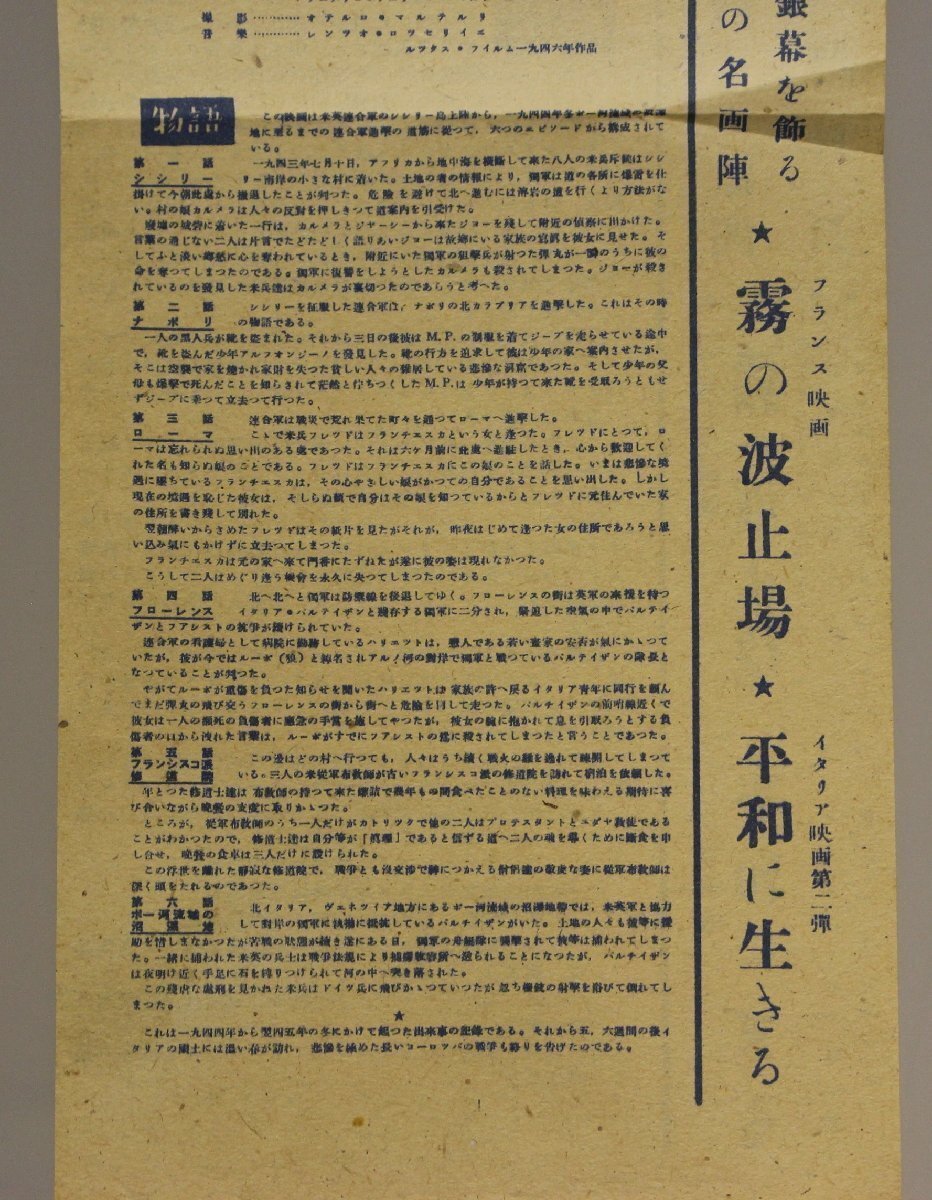 撮影…………オテルロ・マルテルリ
音楽…………レンツオ・ロツセリイニ
ルツクス・フイルム一九四六年作品
物語
この映画は米英連合軍のシシリー島上陸から，一九四四年冬ポー河流域の沼澤
地に至るまでの連合軍進撃の道筋に従つて，六つのエピソードから構成されて
いる。
第一話　一九四三年七月十日，アフリカから地中海を横断して来た八人の米兵斥候はシシ
シシリー　リー南岸の小さな村に着いた。土地の者の情報により，獨軍は道の各所に爆雷を仕
掛けて今朝此處から撤退したことが判つた。危險を避けて北へ進むには溶岩の道を行くより方法がな
い。村の娘カルメラは人々の反對を押しきつて道案内を引受けた。
廢墟の城砦に着いた一行は，カルメラとジヤーシーから来たジヨーを残して附近の偵察に出かけた。
言葉の通じない二人は片言でたどたどしく語りあいジヨーは故郷にいる家族の寫眞を彼女に見せた。そ
してふと淡い郷愁に心を奪われているとき，附近にいた獨軍の狙撃兵が射つた弾丸が一瞬のうちに彼の
命を奪つてしまつたのである。獨軍に復讐をしようとしたカルメラも殺されてしまつた。ジヨーが殺さ
れているのを發見した米兵達はカルメラが裏切つたのであろうと考へた。
第二話　シシリーを征服した連合軍は，ナポリの北カラブリアを進撃した。これはその時
ナポリ　の物語である。
一人の黒人兵が靴を盗まれた。それから三日の後彼はM.P.の制服を着てジープを走らせている途中
で，靴を盗んだ少年アルフオンジーノを發見した。靴の行方を追求して彼は少年の家へ案内させたが，
そこは空襲で家を焼かれ家財を失つた貧しい人々の雑居している悲惨な洞窟であつた。そして少年の父
母も爆撃で死んだことを知らされて茫然と佇ちつくしたM.P.は少年が持つて来た靴を受取ろうともせ
ずジープに乗つて立去つて行つた。
第三話　連合軍は戦災で荒れ果てた町々を通つてローマへ進撃した。
ローマ　こゝで米兵フレツドはフランチエスカという女と逢つた。フレツドにとつて，ロ
ーマは忘れられぬ思い出のある處であつた。それは六ケ月前に此處へ進駐したとき，心から歓迎してく
れた名も知らぬ娘のことである。フレツドはフランチエスカにこの娘のことを話した。いまは悲惨な境
遇に堕ちているフランチエスカは，その心やさしい娘がかつての自分であることを思い出した。しかし
現在の境遇を恥じた彼女は，そしらぬ顔で自分はその娘を知つているからとフレツドに元住んでいた家
の住所を書き残して別れた。
翌朝酔いからさめたフレツドはその紙片を見たがそれが，昨夜はじめて逢つた女の住所であろうと思
い込み氣にもかけずに立去つてしまつた。
フランチエスカは元の家へ来て門番にたずねたが遂に彼の姿は現れなかつた。
こうして二人はめぐり逢う機會を永久に失つてしまつたのである。
第四話　北へ北へと獨軍は防禦線を後退してゆく。フローレンスの街は英軍の來援を待つ
フローレンス　イタリア・パルテイザンと残存する獨軍に二分され，緊迫した空氣の中でパルテイ
ザンとフアシストの抗爭が續けられていた。
連合軍の看護婦として病院に勤務しているハリエツトは，戀人である若い畫家の安否が氣にかゝつて
いたが，彼が今ではルーポ（狼）と綽名されアルノ河の對岸で獨軍と戦つているパルテイザンの隊長と
なつていることが判つた。
やがてルーポが重傷を負つた知らせを聞いたハリエツトは家族の許へ戻るイタリア青年に同行を頼ん
でまだ弾丸の飛び交うフローレンスの街から街へと危險を冒して走つた。パルテイザンの前哨線近くで
彼女は一人の瀕死の負傷者に應急の手當を施してやつたが，彼女の腕に抱かれて息を引取ろうとする負
傷者の口から洩れた言葉は，ルーポがすでにフアシストの為に殺されてしまつたと言うことであつた。
第五話
フランシスコ派　この邊はどの村へ行つても，人々はうち續く戦火の難を逃れて疎開してしまつて
修道院　いる。三人の米従軍布教師が古いフランシスコ派の修道院を訪れて宿泊を依頼した。
年とつた修道士達は布教師の持つて来た罐詰で幾年もの間食べたことのない料理を味わえる期待に喜
び合いながら晩餐の支度に取りかゝつた。
ところが，従軍布教師のうち一人だけがカトリツクで他の二人はプロテスタントとユダヤ教徒である
ことがわかつたので，修道士達は自分等が「眞理」であると信ずる道へ二人の魂を導くために斷食を申
し合せ，晩餐の食卓は三人だけに設けられた。
この浮世を離れた静寂な修道院で，戦爭とも沒交渉で神につかえる僧侶達の敬虔な姿に従軍布教師は
深く頭をたれるのであつた。
第六話
ポー河流域の　北イタリア，ヴエネツイア地方にあるポー河流域の沼澤地帶では，米英軍と協力
沼澤地　して對岸の獨軍に執拗に抵抗しているパルテイザンがいた。土地の人々も彼等に援
助を惜しまなかつたが苦戦の状態が續き遂にある日，獨軍の舟艇隊に襲撃されて彼等は捕われてしまつ
た。一緒に捕われた米英の兵士は戦爭法規により捕虜收容所へ送られることになつたが，パルテイザン
は夜明け近く手足に石を縛りつけられて河の中へ突き落された。
この残虐な處刑を見かねた米兵はドイツ兵に飛びかゝつていつたが忽ち機銃の射撃を浴びて倒れてし
まつた。
★
これは一九四四年から翌四五年の冬にかけて起つた出来事の記録である。それから五，六週間の後イ
タリアの國土には温い春が訪れ，悲惨を極めた長いヨーロツパの戦爭も終りを告げたのである。
銀幕を飾る
の名画陣
★
フランス映画
霧の波止場
★
イタリア映画第二彈
平和に生きる